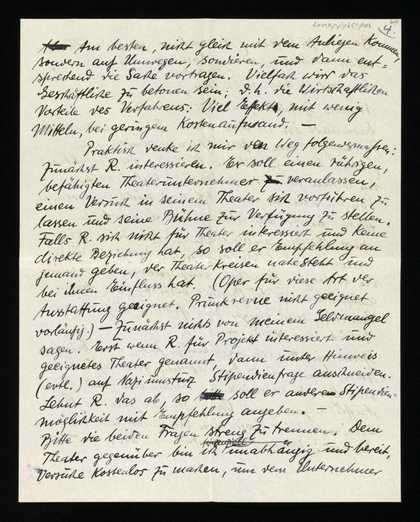 4.
Am besten, nicht gleich mit dem Anliegen kommen,
sondern auf Umwegen, sondieren, und dann ent-
sprechend die Sache vortragen. Vielfach wird das
Geschäftliche zu betonen sein; d.h. die Wirtschaftlichen
Vorteile des Verfahrens: Viel Effekt, mit wenig
Mitteln, bei geringem Kostenaufwand. —
Praktisch denke ich mir den Weg folgendermassen:
Zunächst R. interessieren. Er soll einen rührigen,
befähigten Theaterunternehmer veranlassen,
einen Versuch in seinem Theater sich vorführen zu
lassen und seine Bühne zur Verfügung zu stellen.
Falls R. sich nicht für Theater interessiert und keine
direkte Beziehung hat, so soll er Empfehlung an
jemand geben, der Theaterkreisen nahe steht und
bei ihnen Einfluss hat. (Oper für diese Art der
Ausstattung geeignet. Prunkrevue nicht geeignet
vorläufig.) — Zunächst nichts von meinem Geldmangel
sagen. Erst wenn R. für Projekt interessiert und
geeignetes Theater genannt, dann unter Hinweis
(evtl.) auf Nazismus Stipendienfrage anschneiden.
Lehnt R. das ab, so soll er andere Stipendien-
möglichkeit mit Empfehlung angeben. —
Bitte die beiden Fragen streng zu trennen. Dem
Theater gegenüber bin ich unabhängig und bereit,
Versuche kostenlos zu machen, um dem Unternehmer